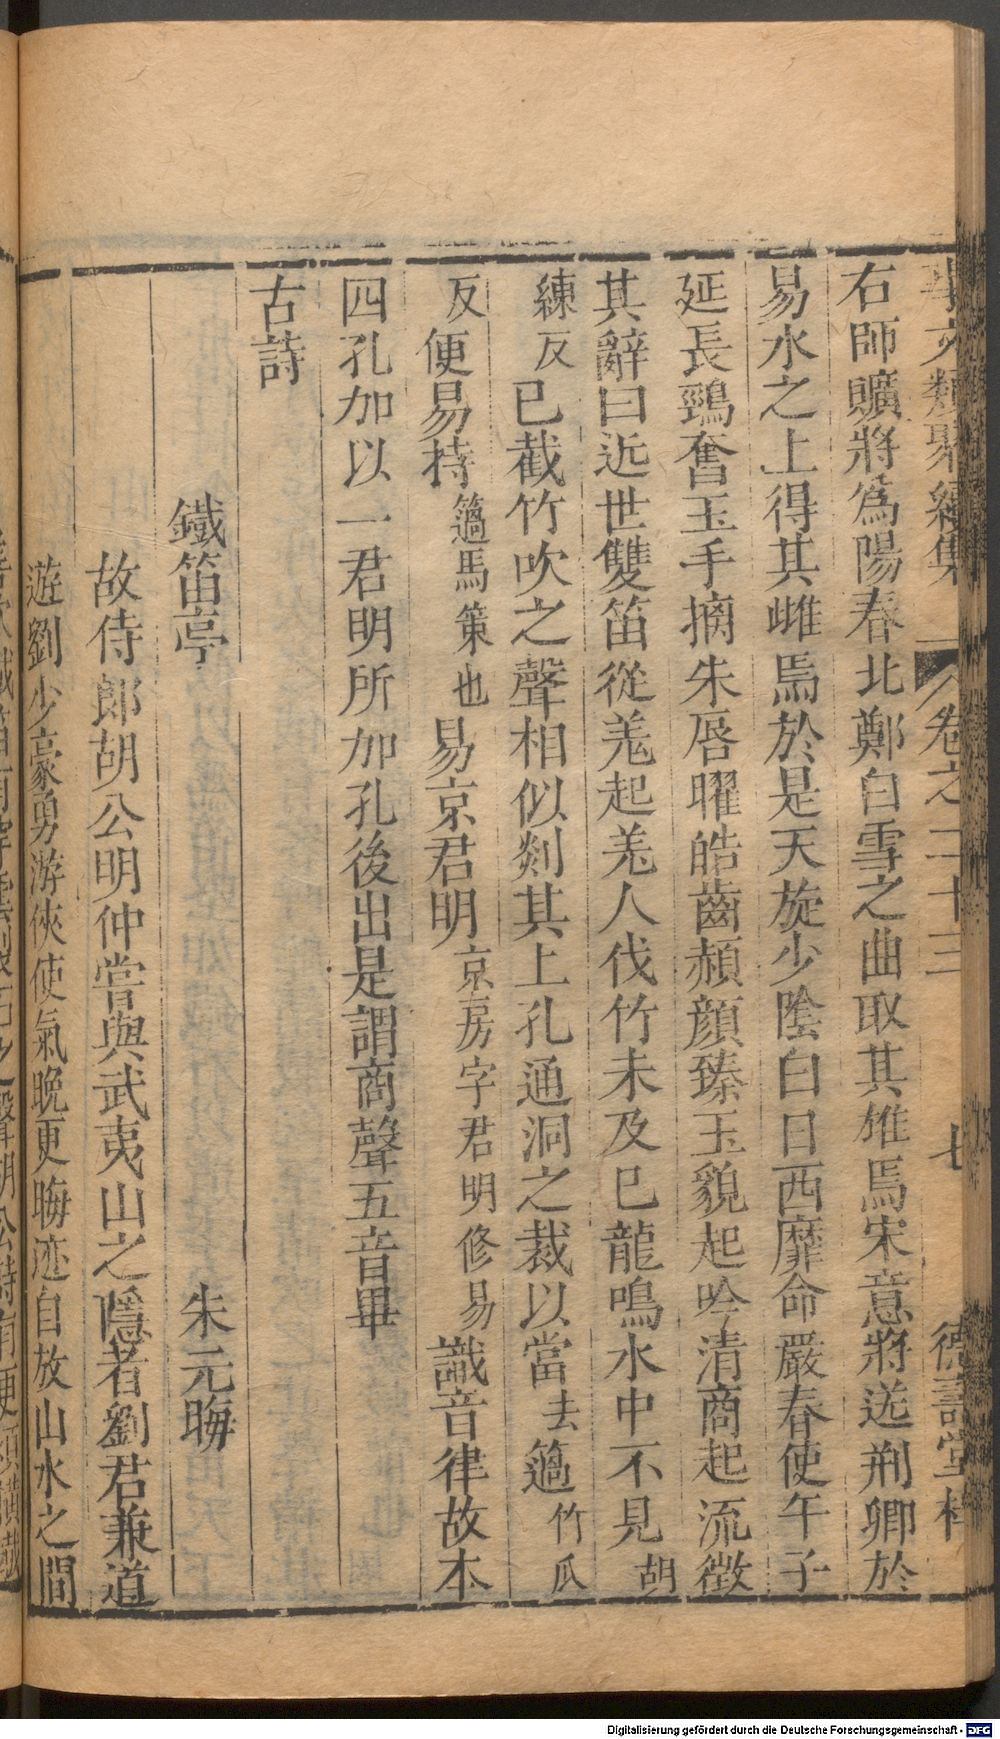 事文類聚續集 卷之二十三 七 德壽堂梓
右師曠將爲陽春北鄭白雪之曲取其雄焉宋意將送荆卿於
易水之上得其雌焉於是天旋少陰白日西靡命嚴春使午子
延長頸奮玉手摛朱唇曜皓齒頳顏臻玉貌起吟清商起流徵
其辭曰近世雙笛從羗起羗人伐竹未及巳龍鳴水中不見胡
練反巳截竹吹之聲相似剡其上孔通洞之裁以當去簻竹瓜
反便易持簻馬策也易京君明京房字君明修易識音律故本
四孔加以一君明所加孔後出是謂商聲五音畢
古詩
鐵笛亭 朱元晦
故侍郎胡公明仲嘗與武夷山之隱者劉君兼道
遊劉少豪勇游俠使氣晚更晦迹自放山水之間
Digitalisierung gefördert durch die Deutsche Forschungsgemeinschaft - DFG